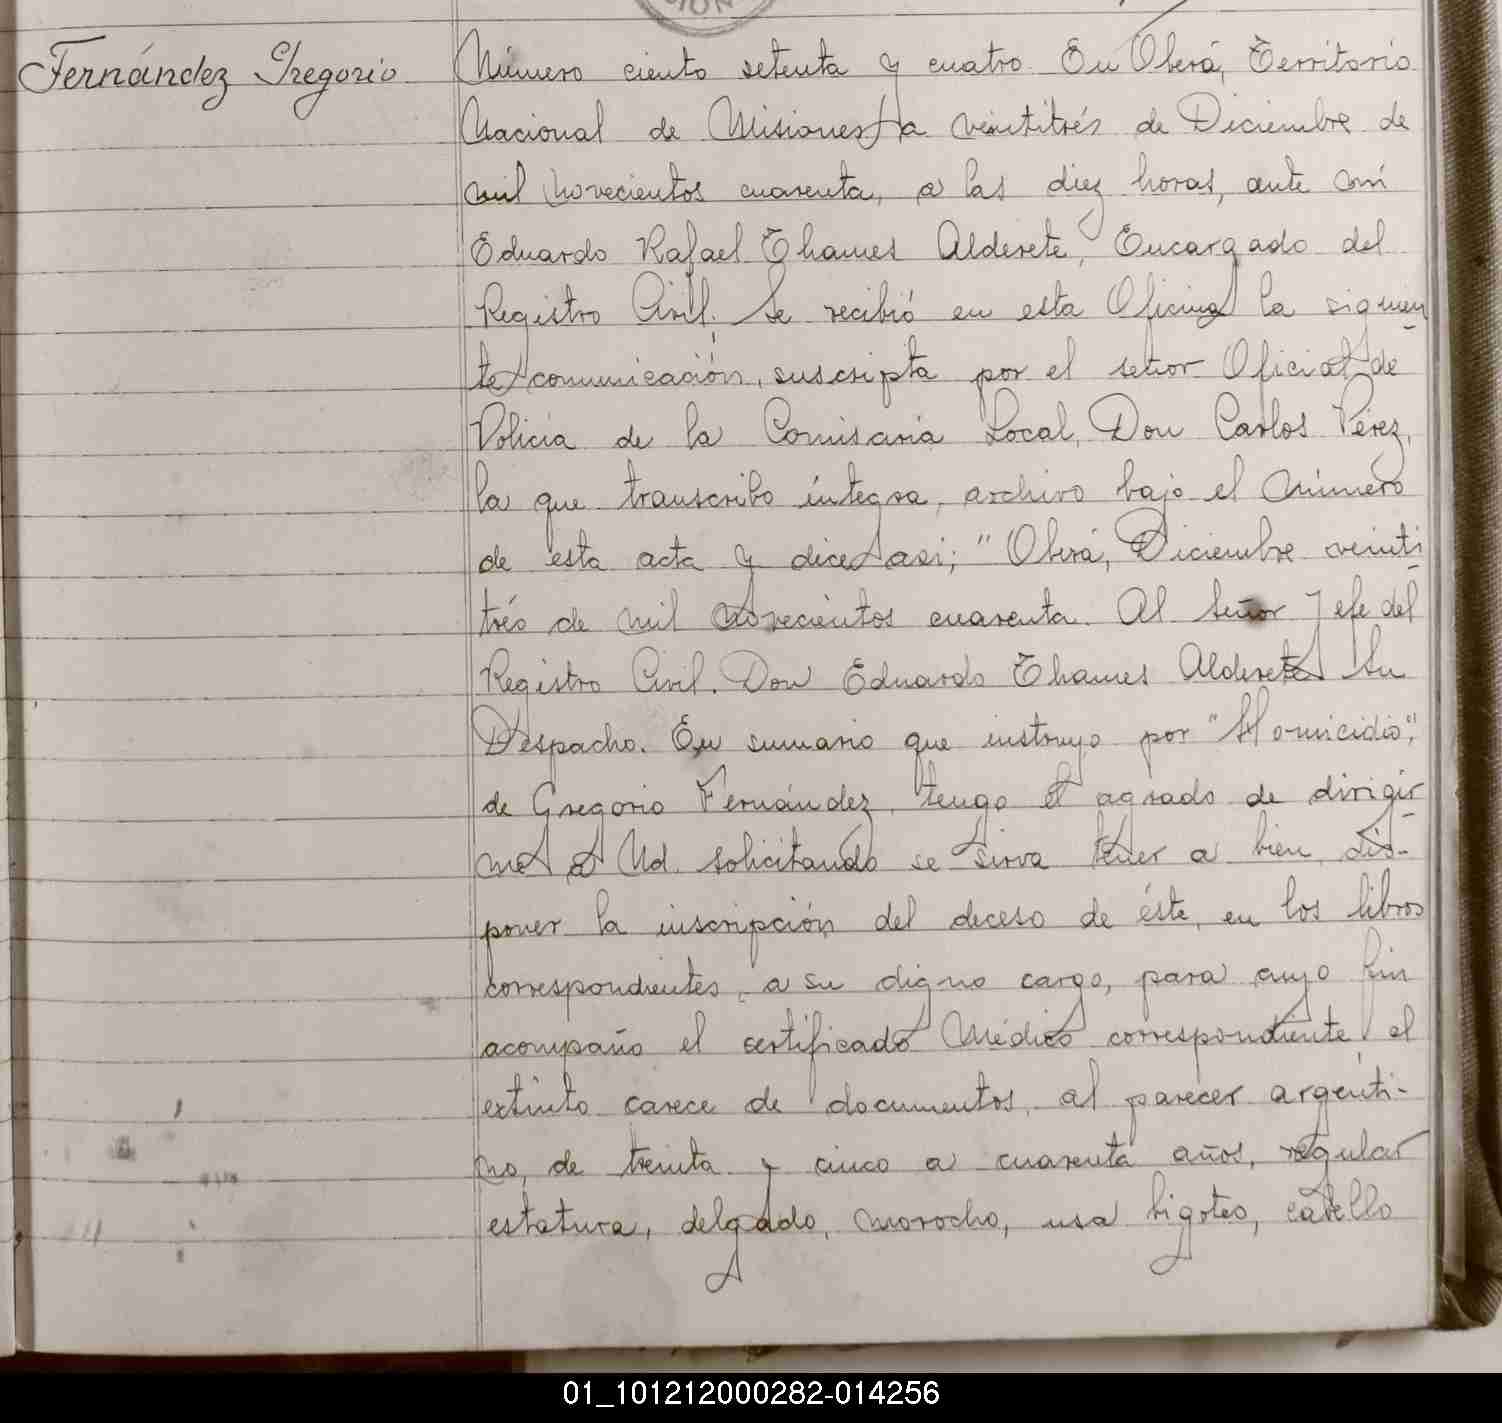 CION
Fernández Gregorio
Número ciento setenta y cuatro. En Oberá, Territorio
Nacional de Misiones, a veintitrés de Diciembre de
mil novecientos cuarenta, a las diez horas, ante mí
Eduardo Rafael Thames Alderete, Encargado del
Registro Civil; Se recibió en esta Oficina, la siguien
te comunicación, suscripta por el señor Oficial de
Policía de la Comisaría Local, Don Carlos Pérez,
la que transcribo íntegra, archivo bajo el número
de esta acta y dice así; "Oberá, Diciembre veinti
trés de mil novecientos cuarenta. Al Señor Jefe del
Registro Civil. Don Eduardo Thames Alderete Su
Despacho. En sumario que instruyo por "Homicidio",
de Gregorio Fernández, tengo el agrado de dirigir
me a Ud. solicitando se sirva tener a bien, dis-
poner la inscripción del deceso de éste, en los libros
correspondientes, a su digno cargo, para cuyo fin
acompaño el certificado Médico correspondiente, el
extinto carece de documentos, al parecer argenti-
no, de treinta y cinco a cuarenta años, regular
estatura, delgado, morocho, usa bigotes, cabello
01_101212000282-014256